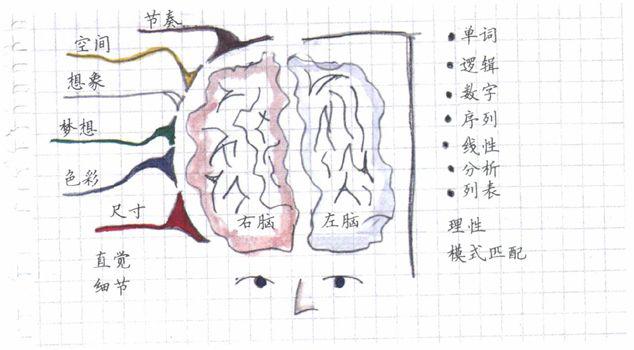 节奏
空间
想象
梦想
色彩
尺寸
直觉
细节
右脑
左脑
单词
逻辑
数字
序列
线性
分析
列表
理性
模式匹配